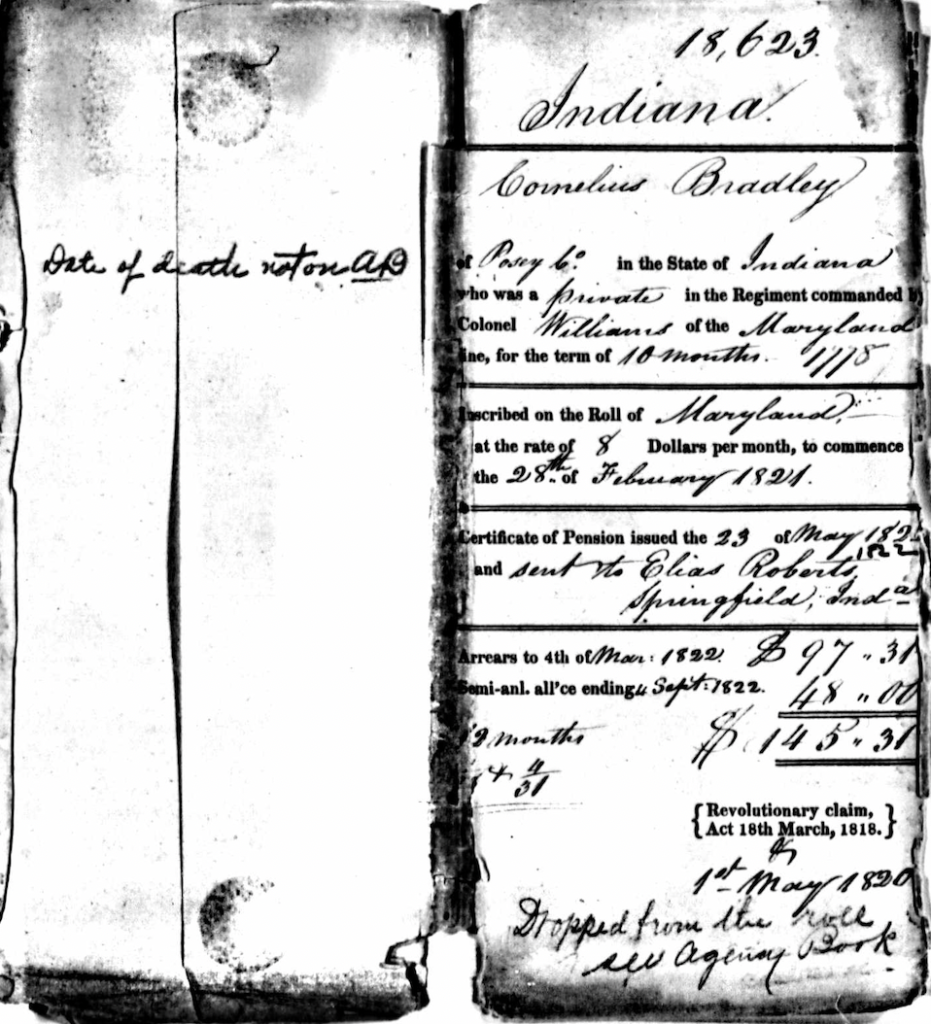 Date of death not on AD
18,623.
Indiana.
Cornelius Bradley
of Posey Co. in the State of Indiana
who was a private in the Regiment commanded by
Colonel Williams of the Maryland
line, for the term of 10 months. 1778
Inscribed on the Roll of Maryland,
at the rate of 8 Dollars per month, to commence
the 28th of February 1821.
Certificate of Pension issued the 23 of May 182
1822
and sent to Elias Roberts,
Springfield, Inda
Arrears to 4th of Mar: 1822. $ 97 " 31
Semi-anl. all'ce ending 4 Sept: 1822. 48 " 00
months $ 145 " 31
4/31
{Revolutionary claim,
Act 18th March, 1818.}
&
1st May 1820
Dropped from the roll
see Agency Book